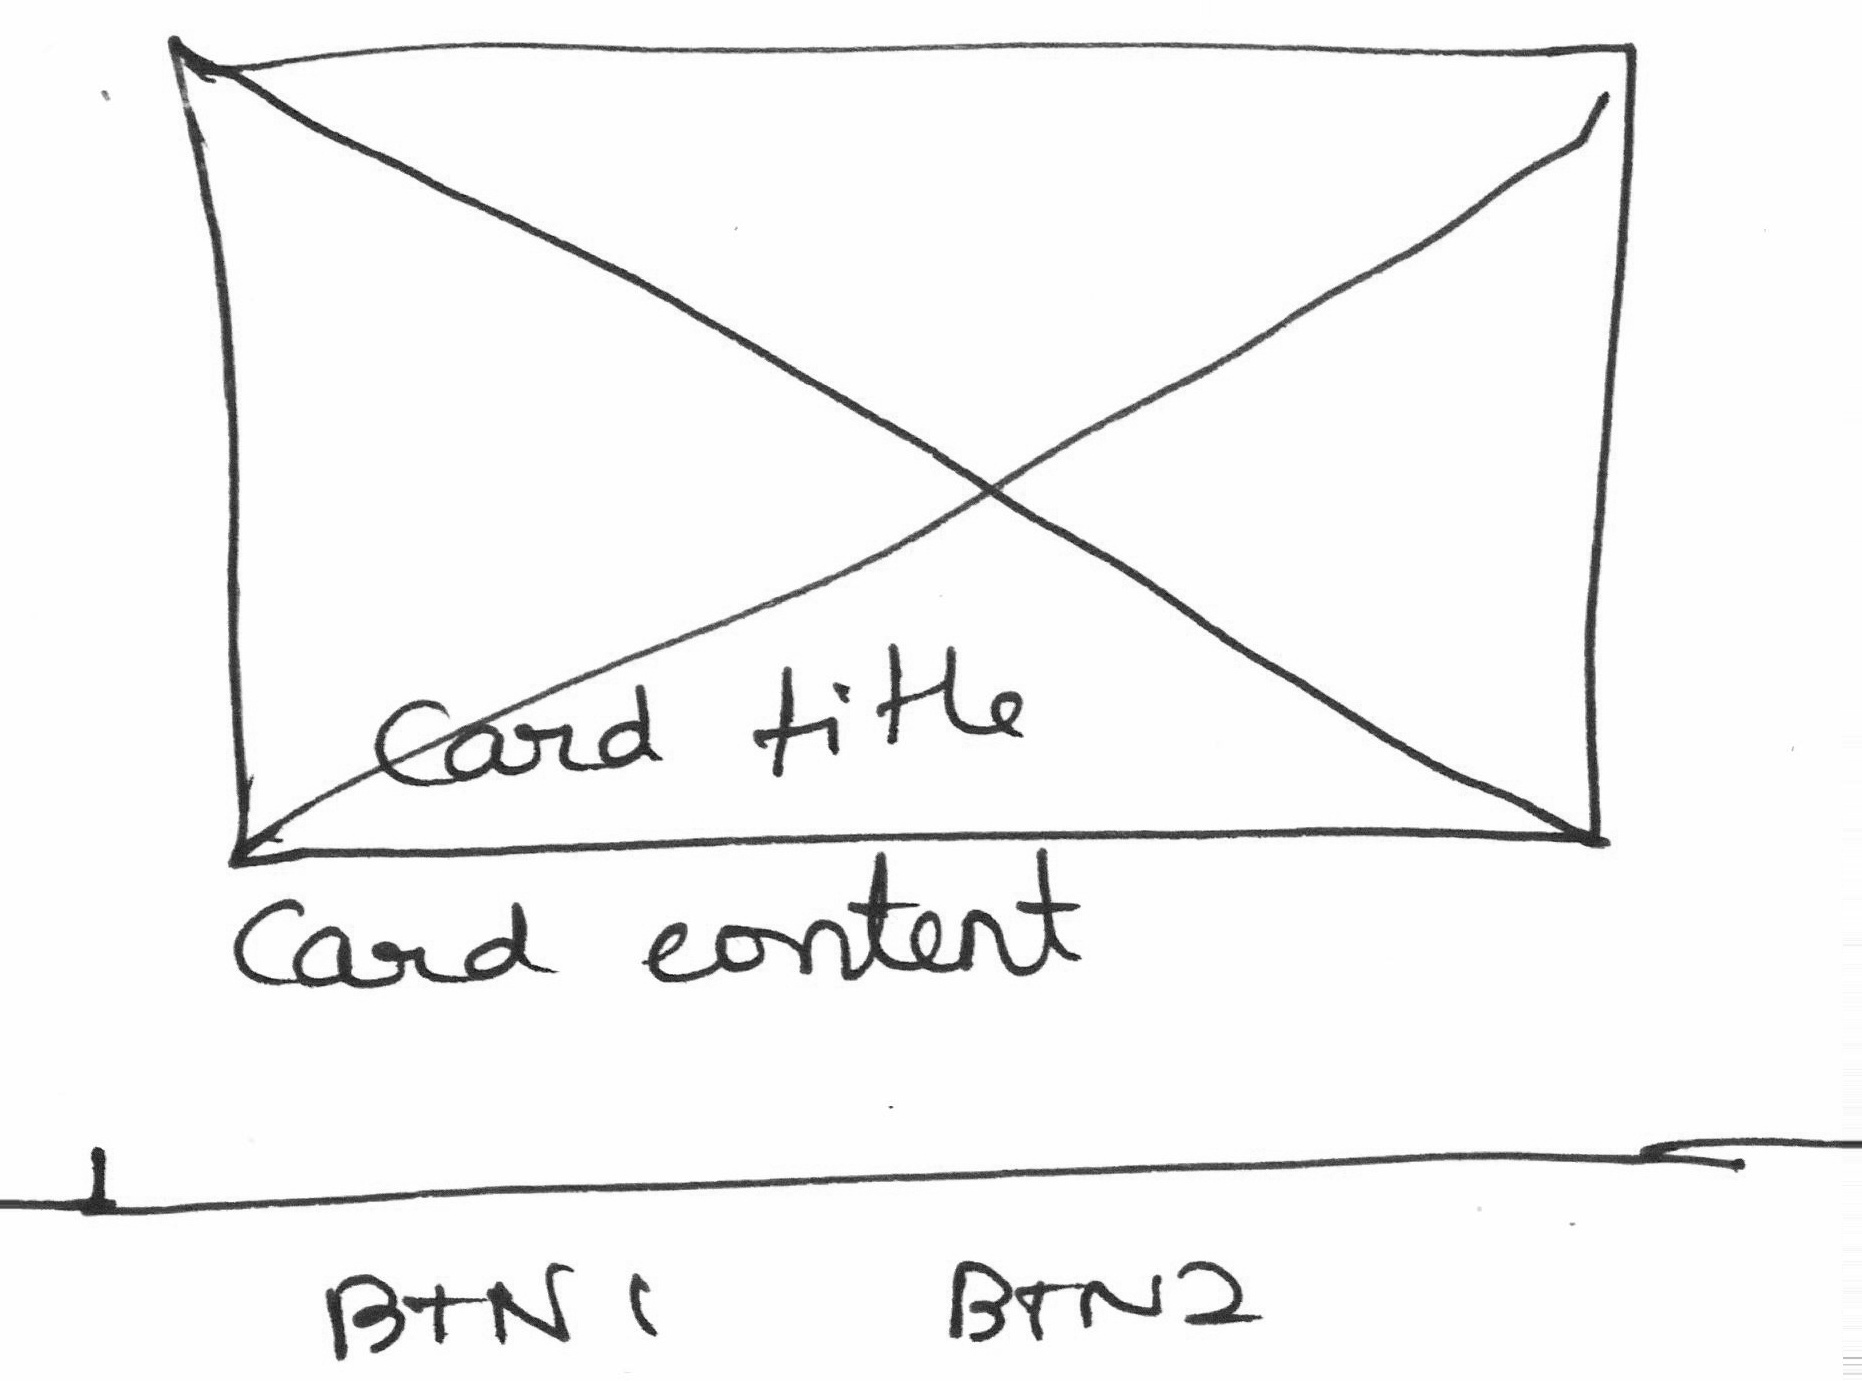 Card title
Card content
BTN 1 BTN2